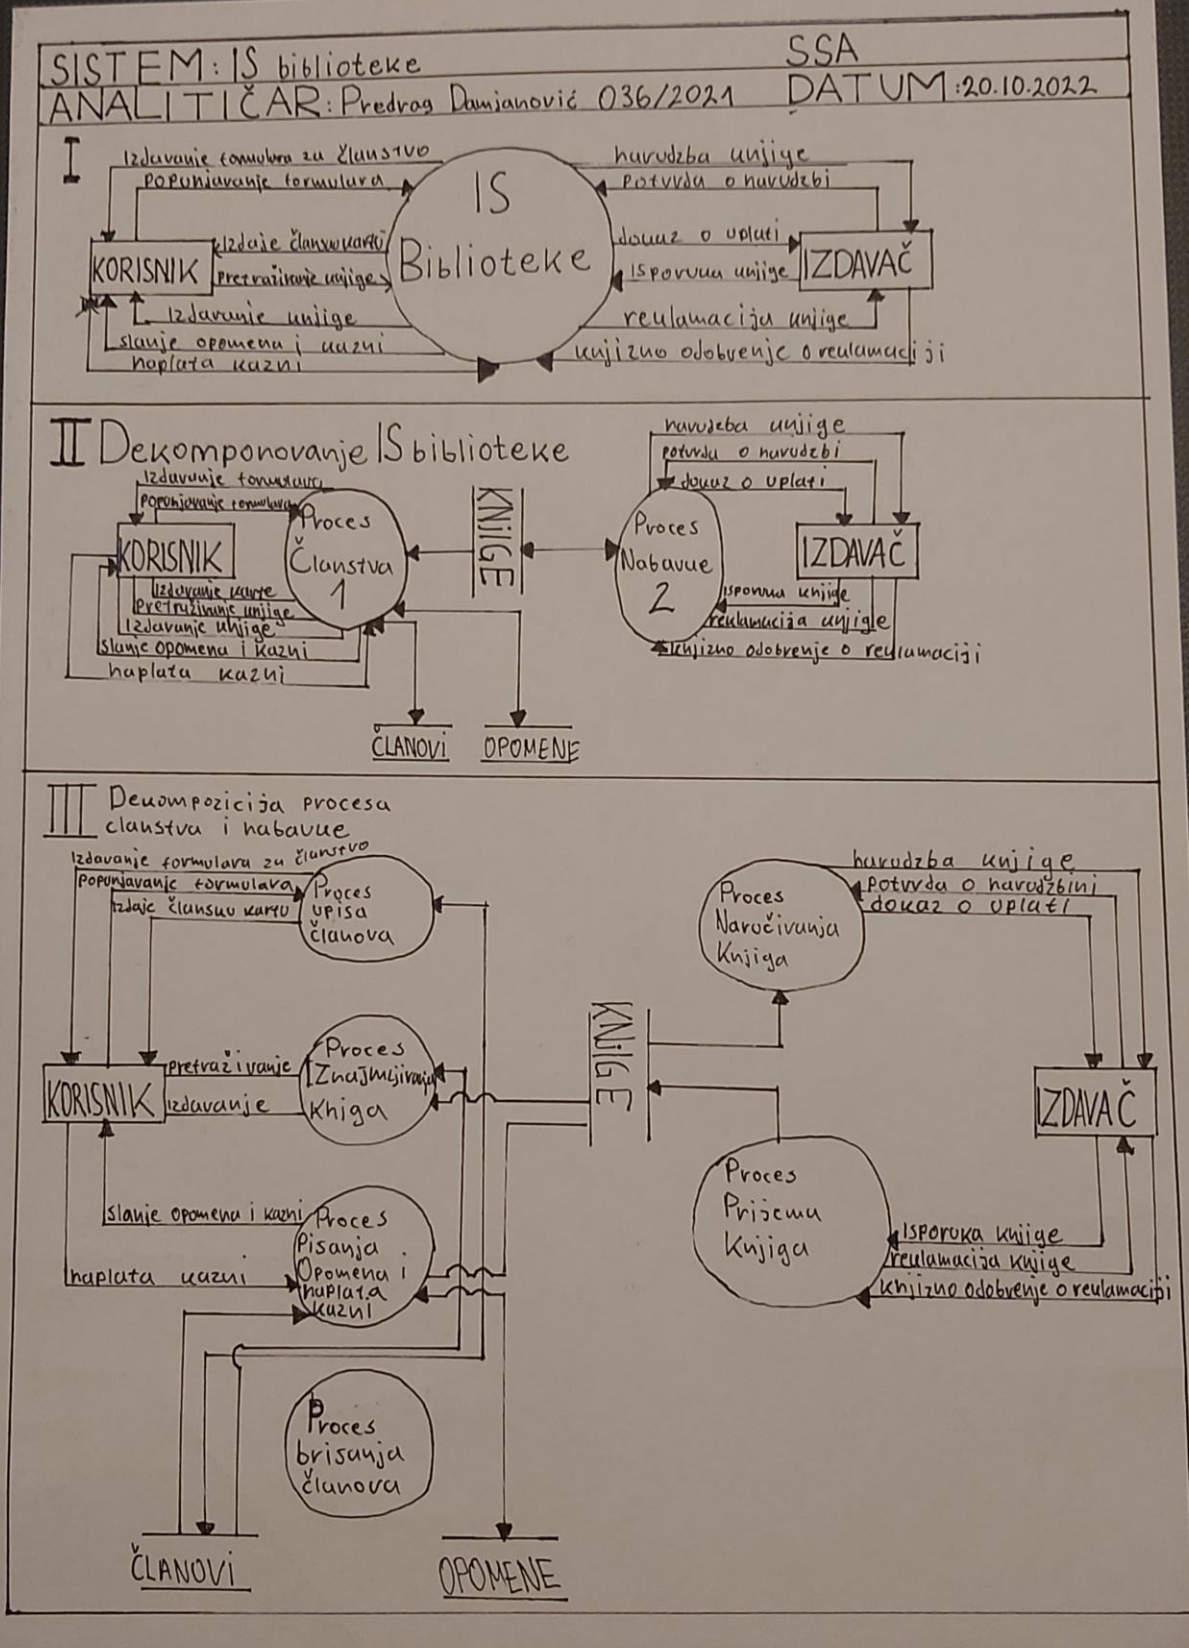 SISTEM: IS biblioteke
SSA
ANALITIČAR: Predrag Damjanović 036/2021
DATUM:20.10.2022
I
Izdavanje formulara za članstvo
popunjavanje formulara
KORISNIK
Izdaje člansku kartu
pretraživanje knjige
Izdavanje knjige
slanje opomena i kazni
naplata kazni
IS
Biblioteke
narudzba knjige
potvrda o narudzbi
dokaz o uplati
isporuka knjige
IZDAVAČ
reklamacija knjige
knjizno odobrenje o reklamaciji
II Dekomponovanje IS biblioteke
Izdavanje formulara
popunjavanje formulara
KORISNIK
Proces
Članstva
1
Izdavanje karte
Pretraživanje knjige
Izdavanje knjige
slanje opomena i kazni
naplata kazni
KNJIGE
narudzba knjige
potvrda o narudzbi
dokaz o uplati
Proces
Nabavke
2
IZDAVAČ
isporuka knjige
reklamacija knjigle
knjizno odobrenje o reklamaciji
ČLANOVI
OPOMENE
III Dekompozicija procesa
clanstva i nabavke
Izdavanje formulara za članstvo
popunjavanje formulara
Izdaje člansku kartu
Proces
upisa
članova
KORISNIK
pretraživanje
izdavanje
Proces
Iznajmljivanja
Khiga
slanje opomena i kazni
naplata kazni
Proces
Pisanja
Opomena i
naplata
kazni
Proces
brisanja
članova
ČLANOVI
OPOMENE
KNJIGE
Proces
Naručivanja
Knjiga
narudzba knjige
potvrda o narudžbini
dokaz o uplati
IZDAVAČ
Proces
Prijema
Knjiga
Isporuka knjige
reklamacija knjige
knjizno odobrenje o reklamaciji